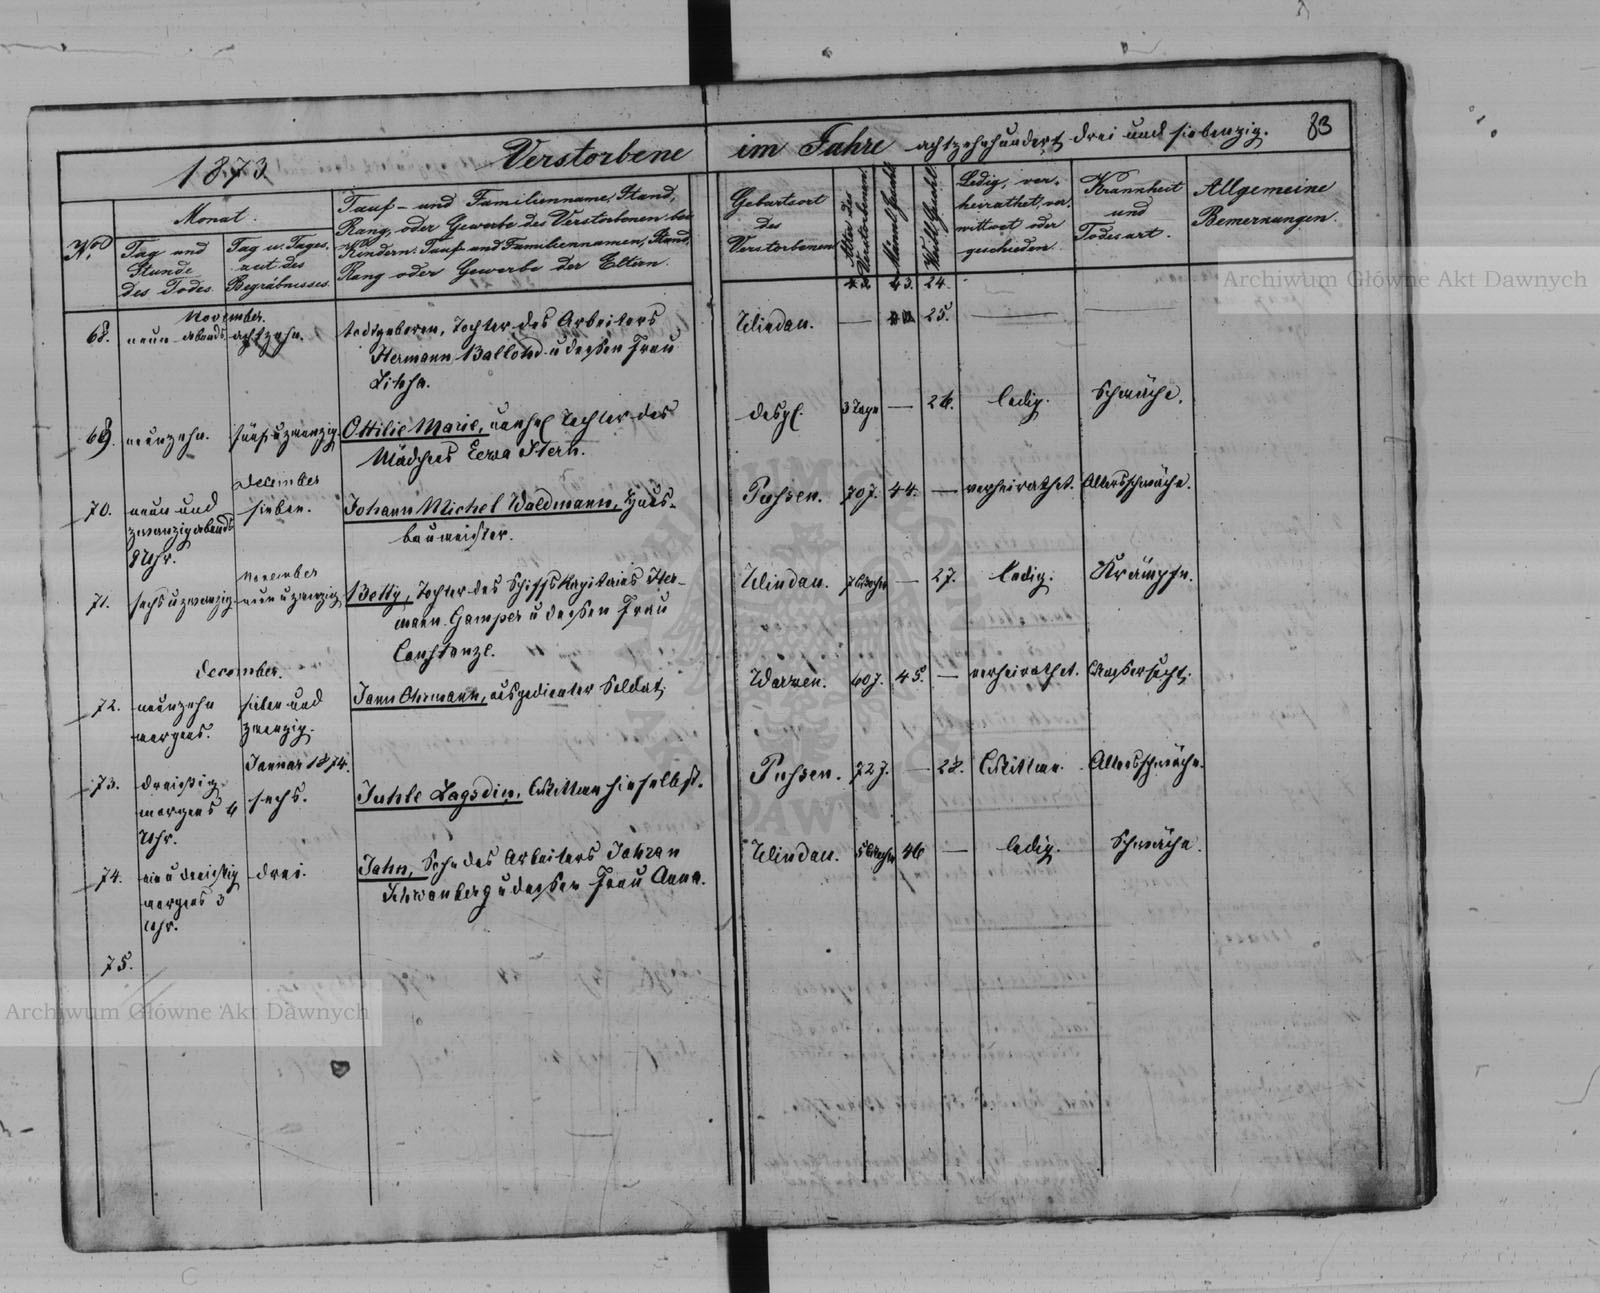 1873.
Verstorbene
im Jahre achtzehnhundert drei und siebenzig.
83
No.
Monat.
Tag und
Stunde
des Todes.
Tag u. Tages-
zeit des
Begräbnisses.
Tauf- und Familienname, Stand,
Rang, oder Gewerbe des Verstorbenen bei
Kindern: Tauf- und Familiennamen, Stand,
Rang oder Gewerbe der Eltern.
Geburtsort
des
Verstorbenen
Alter des
Verstorbenen
Männl. Geschl.
Weibl. Geschl.
Ledig, ver-
heirathet, ver-
wittwet oder
geschieden.
Krannheit
und
Todesart.
Allgemeine
Bemernungen.
43. 24.
November.
68. neun abends achtzehn. todtgeboren, Tochter des Arbeiters Windau. — 25. — —
Hermann Ballohd u dessen Frau
69. neunzehn. fünf u zwanzig. Ottilie Marie, unehel Tochter des desgl. 3 Tage — 26. ledig. Schwäche.
Mädchens
December
70. neun und sieben. Johann Michel Waldmann, Haus- Pussen. 70 J. 44. — verheirathet. Altersschwäche.
zwanzig abends baumeister.
8 Uhr.
November
71. sechs u zwanzig neun u zwanzig Betty, Tochter des Schiffs Kapitains Her- Windau. 7 Wochen — 27. ledig. Krämpfe.
mann Gamper u dessen Frau
Constanze.
December.
72. neunzehn sieben und Jann Ohrmann, ausgedienter Soldat. Warwen. 60 J. 45. — verheirathet. Wassersucht.
morgens. zwanzig.
Januar 1874.
73. dreissig sechs. Juhle Lagsdin, Wittwe hieselbst. Pussen. 72 J. — 28. Wittwe. Altersschwäche.
morgens 4
Uhr.
74. ein u dreissig drei. Jahn, Sohn des Arbeiters Windau. 5 Wochen 46 — ledig. Schwäche.
morgens 3 Schwanberg u dessen Frau Anna.
Uhr.
75.
Archiwum Główne Akt Dawnych
Archiwum Główne Akt Dawnych